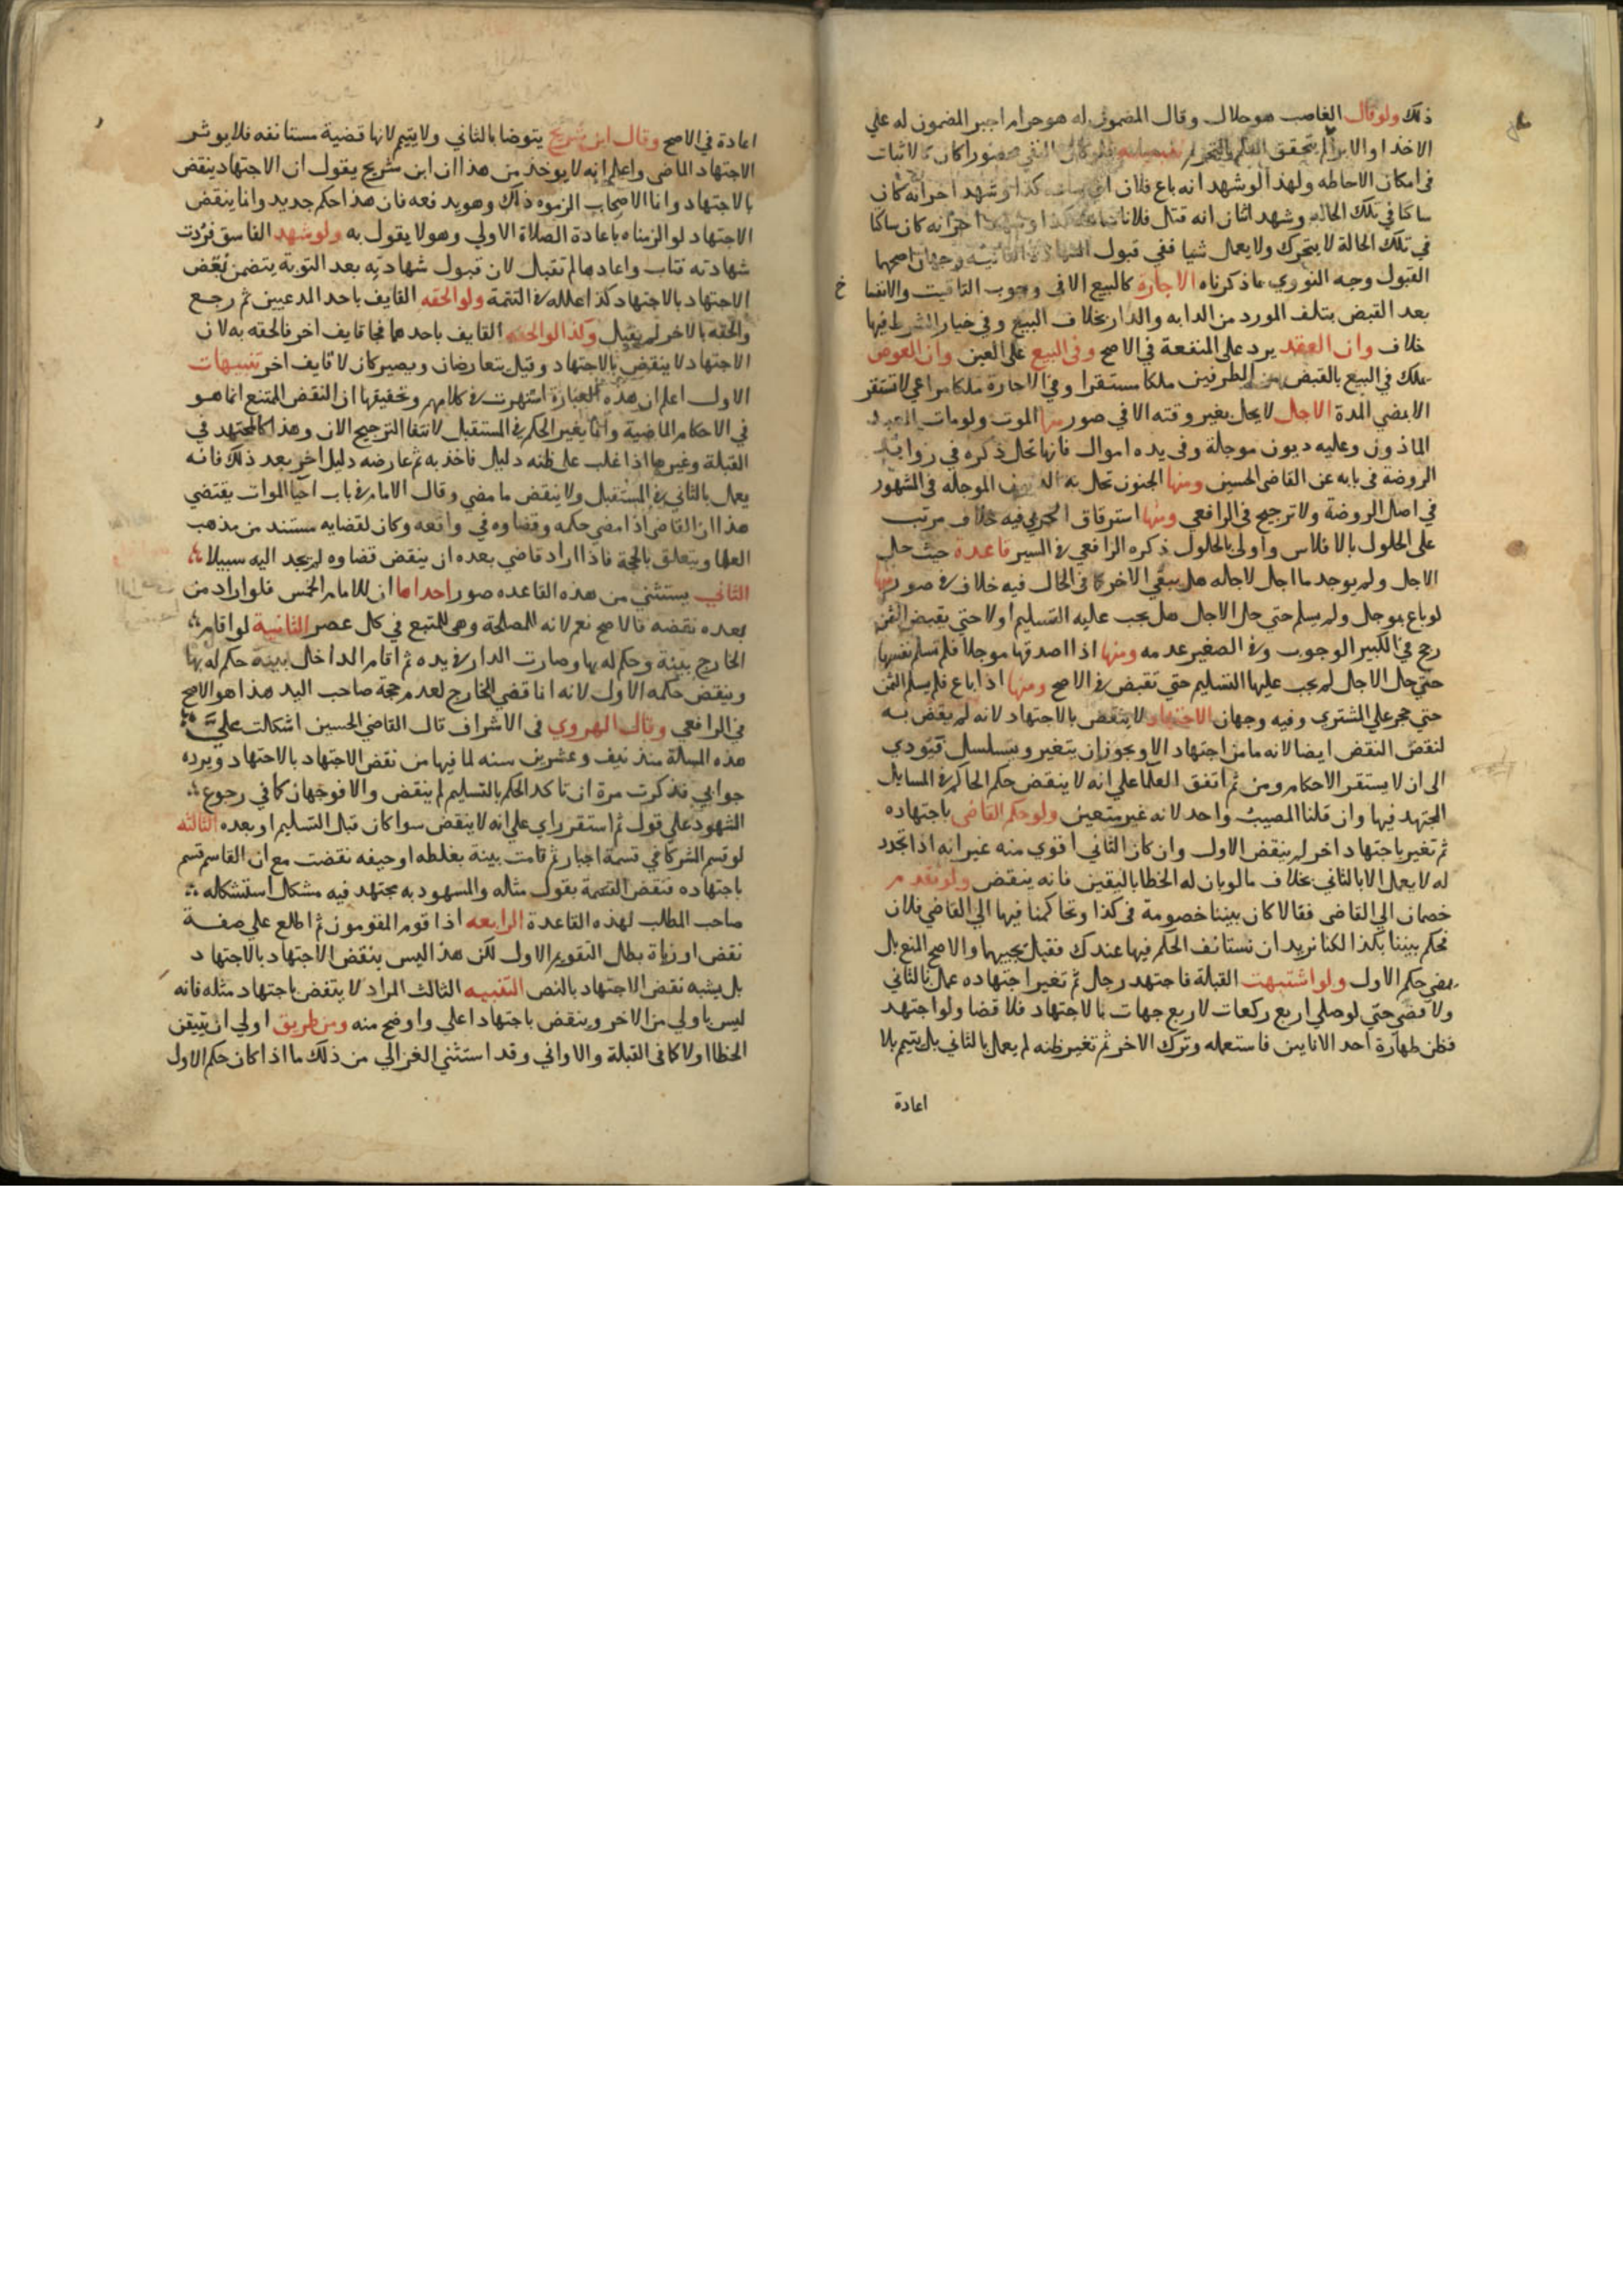 ذلك ولو قال الغاصب هو حلال وقال المضمون له هو حرام اجبر المضمون له علي
الاخذ او الابرا
في امكان الاحاطه ولهذا لو شهد انه باع فلان وشهد اخر انه كان
ساكتا في تلك الحاله وشهد اثنان انه قتل فلانا اخر انه كان ساكتا
في تلك الحالة لا يتحرك ولا يعمل شيا ففي قبول الشهادة الثانية وجهان اصحهما
القبول وجه النوري ما ذكرناه الاجارة كالبيع الا في وجوب التاقيت والانفسا خ
بعد القبض بتلف المورد من الدابه والدار بخلاف البيع وفي خيار الشرط فيها
خلاف وان العقد يرد على المنفعة في الاصح وفي البيع على العين وان العوض
يملك في البيع بالقبض من الطرفين ملكا مستقرا وفي الاجارة ملكا مراعي لا تستقر
الا بمضي المدة الاجل لا يحل بغير وقته الا في صور منها الموت ولو مات العبد
الماذون وعليه ديون موجلة وفي يده اموال فانها تحل ذكره في زوايد
الروضة في بابه عن القاضي الحسين ومنها الجنون تحل به الديون الموجله في المشهور
في اصل الروضة ولا ترجيح في الرافعي ومنها استرقاق الحربي فيه خلاف مرتب
على الحلول بالافلاس واولى بالحلول ذكره الرافعي في السير قاعدة حيث حل
الاجل ولم يوجد ما اجل لاجله هل يبقي الاخر كما في الحال فيه خلاف في صور منها
لو باع بموجل ولم يسلم حتي حل الاجل هل يجب عليه التسليم او لا حتي يقبض الثمن
رجح في الكبير الوجوب وفي الصغير عدمه ومنها اذا اصدقها موجلا فلم تسلم نفسها
حتي حل الاجل لم يجب عليها التسليم حتي تقبض في الاصح ومنها اذا باع فلم يسلم الثمن
حتي حجر علي المشتري وفيه وجهان الاجتهاد لا ينقض بالاجتهاد لانه لو نقض به
لنقض النقض ايضا لانه ما من اجتهاد الا ويجوز ان يتغير ويتسلسل فيودي
الى ان لا يستقر الاحكام ومن ثم اتفق العلما علي انه لا ينقض حكم الحاكم في المسايل
المجتهد فيها وان قلنا المصيب واحد لانه غير متعين ولو حكم القاضي باجتهاده
ثم تغير باجتهاد اخر لم ينقض الاول وان كان الثاني اقوي منه غير انه اذا تجدد
له لا يعمل الا بالثاني بخلاف ما لو بان له الخطا باليقين فانه ينقض ولو تقدم
خصمان الي القاضي فقالا كان بيننا خصومة في كذا وتحاكمنا فيها الي القاضي فلان
فحكم بيننا بكذا لكنا نريد ان نستانف الحكم فيها عندك فقيل يجيبهما والاصح المنع بل
يمضي حكم الاول ولو اشتبهت القبلة فاجتهد رجل ثم تغير اجتهاده عمل بالثاني
ولا قضي حتي لو صلي اربع ركعات لاربع جهات بالاجتهاد فلا قضا ولو اجتهد
فظن طهارة احد الانايين فاستعمله وترك الاخر ثم تغير ظنه لم يعمل بالثاني بل يتيمم بلا
اعادة
اعادة في الاصح وقال ابن شريح يتوضا بالثاني ولا يتيمم لانها قضية مستانفه فلا يوثر
الاجتهاد الماضي واعلم انه لا يوخذ من هذا ان ابن شريح يقول ان الاجتهاد ينقض
بالاجتهاد وانا الاصحاب الزموه ذاك وهو يدفعه فان هذا حكم جديد وانا ينقض
الاجتهاد لو الزمناه باعادة الصلاة الاولي وهو لا يقول به ولو شهد الفاسق فردت
شهادته فتاب واعادها لم تقبل لان قبول شهادته بعد التوبة يتضمن نقض
الاجتهاد بالاجتهاد كذا علله في التتمة ولو الحقه القايف باحد المدعيين ثم رجع
والحقه بالاخر لم يقبل وكذا لو الحقه القايف باحدهما فجا قايف اخر فالحقه به لان
الاجتهاد لا ينقض بالاجتهاد وقيل يتعارضان ويصير كان لا قايف اخر تنبيهات
الاول اعلم ان هذه العبارة اشتهرت في كلامهم وتحقيقها ان النقض الممتنع انما هو
في الاحكام الماضية وانما يغير الحكم في المستقبل لانتفا الترجيح الان وهذا كالمجتهد في
القبلة وغيرها اذا غلب على ظنه دليل فاخذ به ثم عارضه دليل اخر بعد ذلك فانه
يعمل بالثاني في المستقبل ولا ينقض ما مضي وقال الامام في باب احيا الموات يقتضي
هذا ان القاضي اذا امضي حكمه وقضاوه في واقعه وكان لقضايه مستند من مذهب
العلما ويتعلق بالحجة فاذا اراد قاضي بعده ان ينقض قضاوه لم يجد اليه سبيلا
الثاني يستثني من هذه القاعده صور احداها ان للامام الخمس فلو اراد من
بعده نقضه فالاصح نعم لانه للمصلحة وهي المتبع في كل عصر الثانية لو اقام
الخارج بينة وحكم له بها وصارت الدار في يده ثم اقام الداخل بينة حكم له بها
وينقض حكمه الاول لانه انا قضي للخارج لعدم حجة صاحب اليد هذا هو الاصح
في الرافعي وقال الهروي في الاشراف قال القاضي الحسين اشكلت علي
هذه المسالة منذ نيف وعشرين سنه لما فيها من نقض الاجتهاد بالاجتهاد ويرده
جوابي فذكرت مرة ان تاكد الحكم بالتسليم لم ينقض والا فوجهان كما في رجوع
الشهود علي قول ثم استقر راي علي انه لا ينقض سوا كان قبل التسليم او بعده الثالثه
لو قسم الشركا في قسمة اجبار ثم قامت بينة بغلطه او حيفه نقضت مع ان القاسم قسم
باجتهاده فنقض القسمة بقول مثله والمشهود به مجتهد فيه مشكل استشكله
صاحب المطلب لهذه القاعدة الرابعه اذا قوم المقومون ثم اطلع علي صفة
نقض او زياة بطل التقويم الاول لكن هذا ليس بنقض الاجتهاد بالاجتهاد
بل يشبه نقض الاجتهاد بالنص التنبيه الثالث المراد لا ينقض باجتهاد مثله فانه
ليس باولي من الاخر وينقض باجتهاد اعلي واوضح منه ومن طريق اولي ان يتيقن
الخطا اولا كما في القبلة والاواني وقد استثني الغزالي من ذلك ما اذا كان حكم الاول